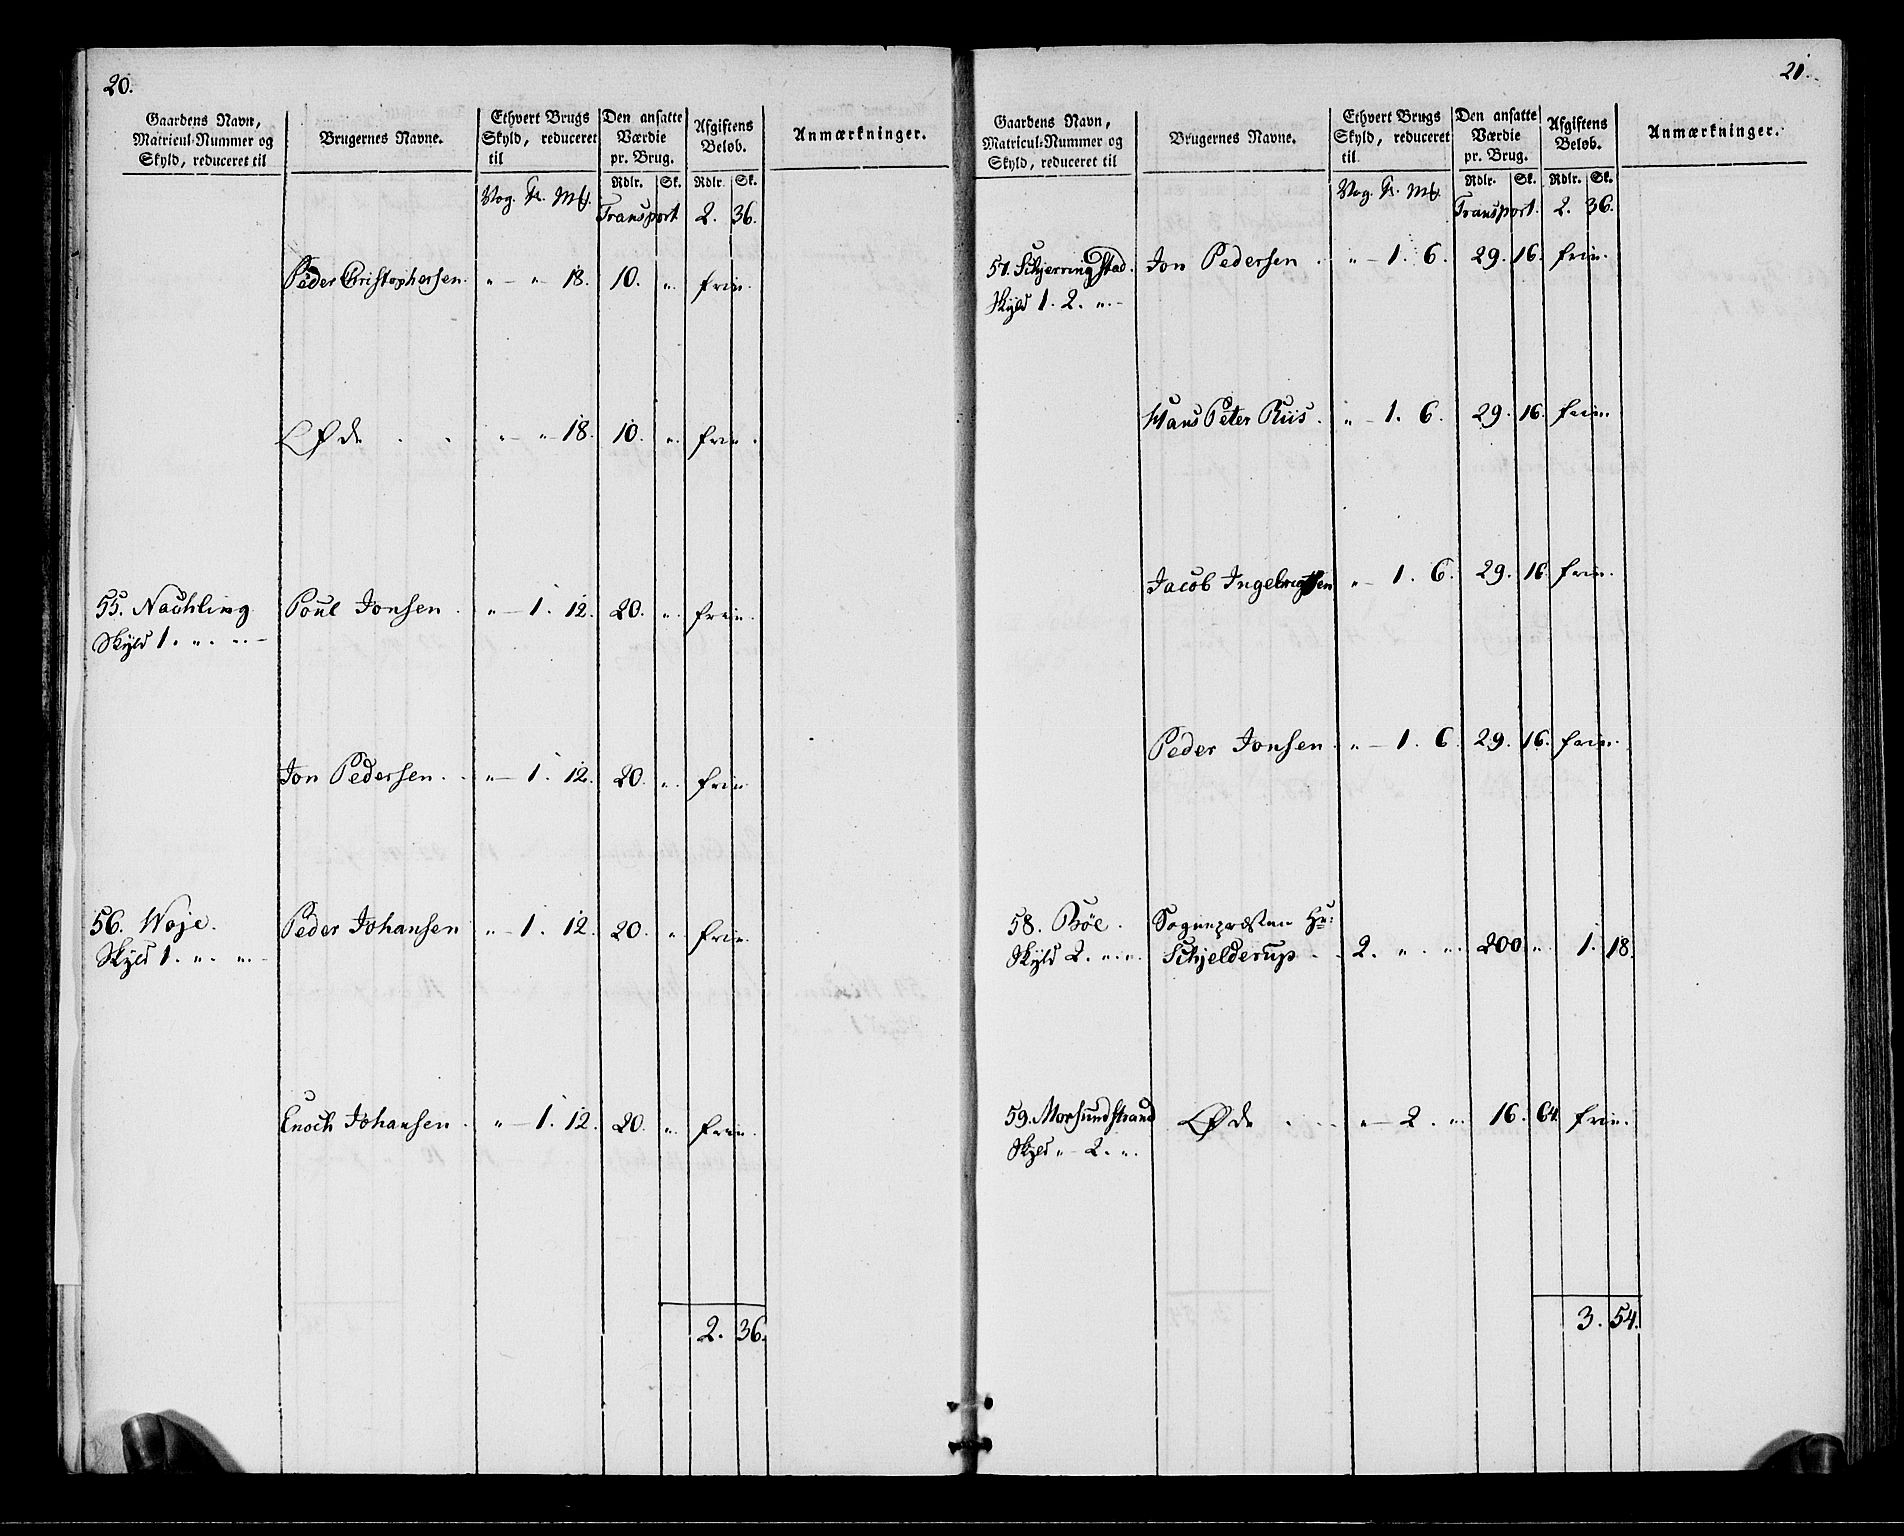 20.
Gaardens Navn, Matricul-Nummer og Skyld, reduceret til | Brugernes Navne. | Ethvert Brugs Skyld, reduceret til | Den ansatte Værdie pr. Brug. | Afgiftens Beløb. | Anmærkninger.
Vog. | Rdlr. | Sk. | Rdlr. | Sk.
Transport 2. 36.
Peder Christophersen. " — " 18. 10. ". frie.
Øde . . " — " 18. 10. ". frie.
55. Nachling Poul Jonsen . " — 1. 12. 20. ". frie.
Skyld 1. ". ". —
Jon Pedersen . . " — 1. 12. 20. ". frie
56. Woje. Peder Johansen " — 1. 12. 20. ". frie.
Skyld 1. ". ". —
Enoch Johansen . " — 1. 12. 20. ". frie.
2. 36.
21.
Gaardens Navn, Matricul-Nummer og Skyld, reduceret til | Brugernes Navne. | Ethvert Brugs Skyld, reduceret til | Den ansatte Værdie pr. Brug. | Afgiftens Beløb. | Anmærkninger.
Vog. | Rdlr. | Sk. | Rdlr. | Sk.
Transport. 2. 36.
57. Schjerringstad. Jon Pedersen . " — 1. 6. 29. 16. frie.
Skyld 1. 2. ". —
Hans Peter Riis . " — 1. 6. 29. 16. frie.
Jacob Ingebrigtsen " — 1. 6. 29. 16. frie.
Peder Jonsen . " — 1. 6. 29. 16. frie.
58. Bøe. Sognepræsten Hr:
Skyld 2. ". ". Schjelderup . . 2. ". ". 200 ". 1. 18.
59. Morsundstrand Øde . . " — 2. ". 16. 64 frie.
Skyld " — 2. ".
3. 54.